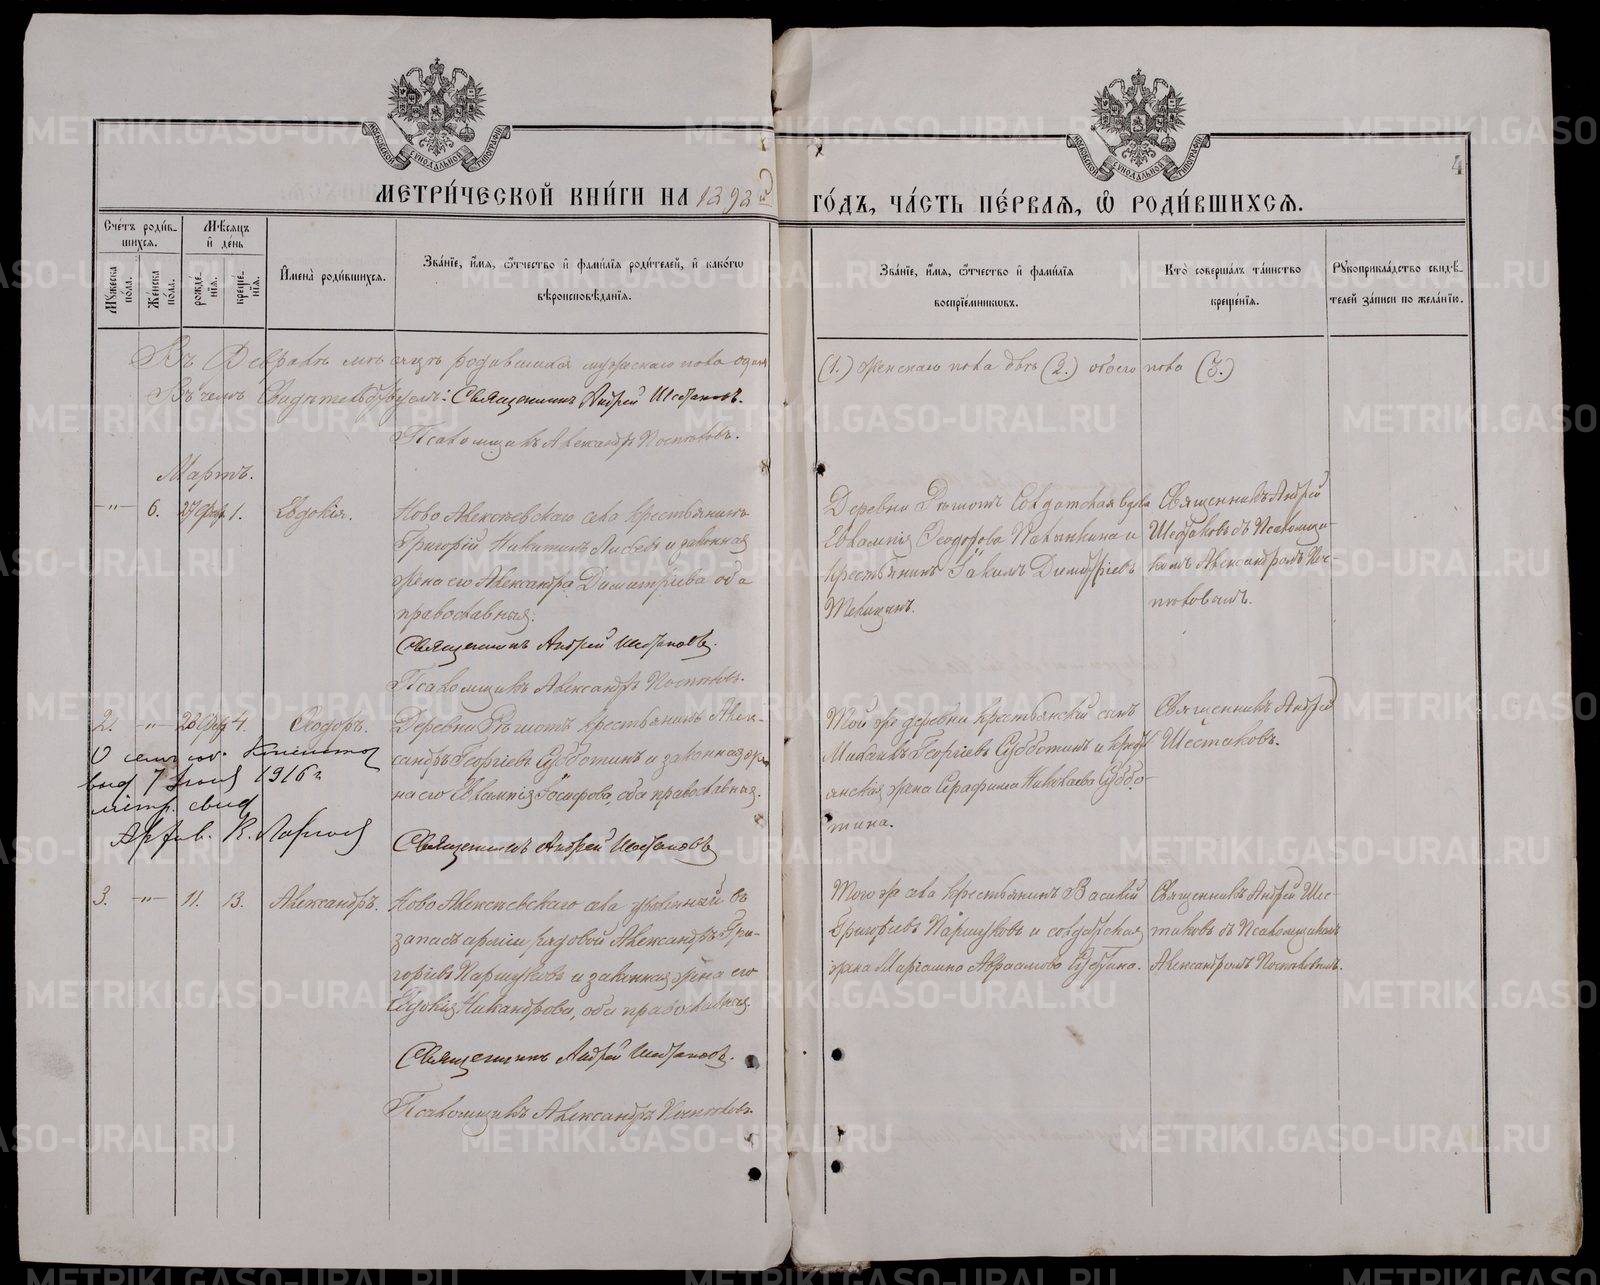 МОСКОВСКОЙ СѴНОДАЛЬНОЙ ТИПОГРАФІИ
МОСКОВСКОЙ СѴНОДАЛЬНОЙ ТИПОГРАФІИ
4
МЕТРИ́ЧЕСКОЙ КНИ́ГИ НА 1892й ГО́ДЪ, ЧА́СТЬ ПЕ́РВАЯ, Ѡ РОДИ́ВШИХСЯ.
Сче́тъ роди́вшихся.
Мꙋ́жеска по́ла.
Же́нска по́ла.
Мѣ́сяцъ и҆ день
рожде́нїя.
креще́нїя.
И҆мена̀ роди́вшихся.
Зва́нїе, и҆́мя, ѻ҆́тчество и҆ фами́лїя роди́телей, и҆ како́гѡ вѣроисповѣ́данїя.
Зва́нїе, и҆́мя, ѻ҆́тчество и҆ фами́лїя воспрїе́мникѡвъ.
Кто̀ соверша́лъ та́инство креще́нїя.
Рꙋкоприкла́дство свидѣ́телей за́писи по жела́нїю.
Въ Февралѣ мѣсяцѣ родившихся мужескаго пола одинъ (1.) женскаго пола двѣ (2.) обоего пола (3.)
Въ чемъ Свидѣтельствуемъ: Священникъ Андрей Шестаковъ.
Псаломщикъ Александръ
Мартъ.
-"- 6. 27 Фев. 1. Евдокія.
Ново Алексѣевскаго села крестьянинъ
Григорій Никитинъ и законная
жена его Александра Димитріева оба
православныя.
Священникъ Андрей Шестаковъ.
Псаломщикъ Александръ
Деревни Солдатская вдова
Евлампія Ѳеодорова и
крестьянинъ Димитріевъ
Священникъ Андрей
Шестаковъ съ Псаломщи-
комъ Александромъ
2. -"- 26 Фев. 4. Ѳеодоръ.
Деревни крестьянинъ Алек-
сандръ Георгіевъ Субботинъ и законная же-
на его Евлампія Іосифова, оба православныя.
Священникъ Андрей Шестаковъ
Той же деревни крестьянскій сынъ
Михаилъ Георгіевъ Субботинъ и кресть-
янская жена Серафима Николаева Суббо-
тина.
Священникъ Андрей
Шестаковъ.
О семъ
выд 7 1916 г
метр. свид
3. -"- 11. 13. Александръ.
Ново Алексѣевскаго села уволенный въ
запасъ арміи рядовой Александръ Гри-
горіевъ Паршуковъ и законная жена его
Евдокія Никандрова, оба православныя
Священникъ Андрей Шестаковъ.
Псаломщикъ Александръ
Того же села крестьянинъ Василій
Григоріевъ Паршуковъ и солдатская
жена Авраамова
Священникъ Андрей Шес-
таковъ съ Псаломщикомъ
Александромъ
METRIKI.GASO-URAL.RU